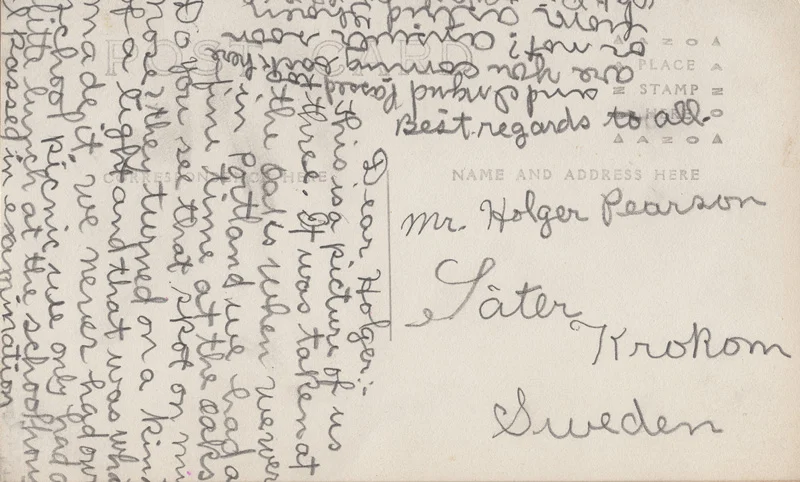 POST CARD
CORRESPONDENCE HERE
Dear Holger:-
this is a picture of us
three. It was taken at
the oaks when we were
in Portland we had a
fine time at the oaks
Do you see that spot on
nose? they turned on a
of a light and that was
made it we never had our
school picnic we only had a
little lunch at the
I passed in examination
and Ingrid passed to
are you coming back here
or not? soon
from Astrid
Best regards to all.
AZOA
PLACE
STAMP
HERE
AZOA
NAME AND ADDRESS HERE
Mr. Holger Pearson
Säter
Krokom
Sweden